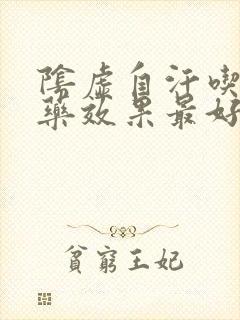 陰虛自汗喫
藥效果最好
貧窮王妃